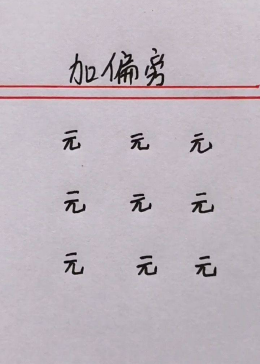 加偏旁
元 元 元
元 元 元
元 元 元